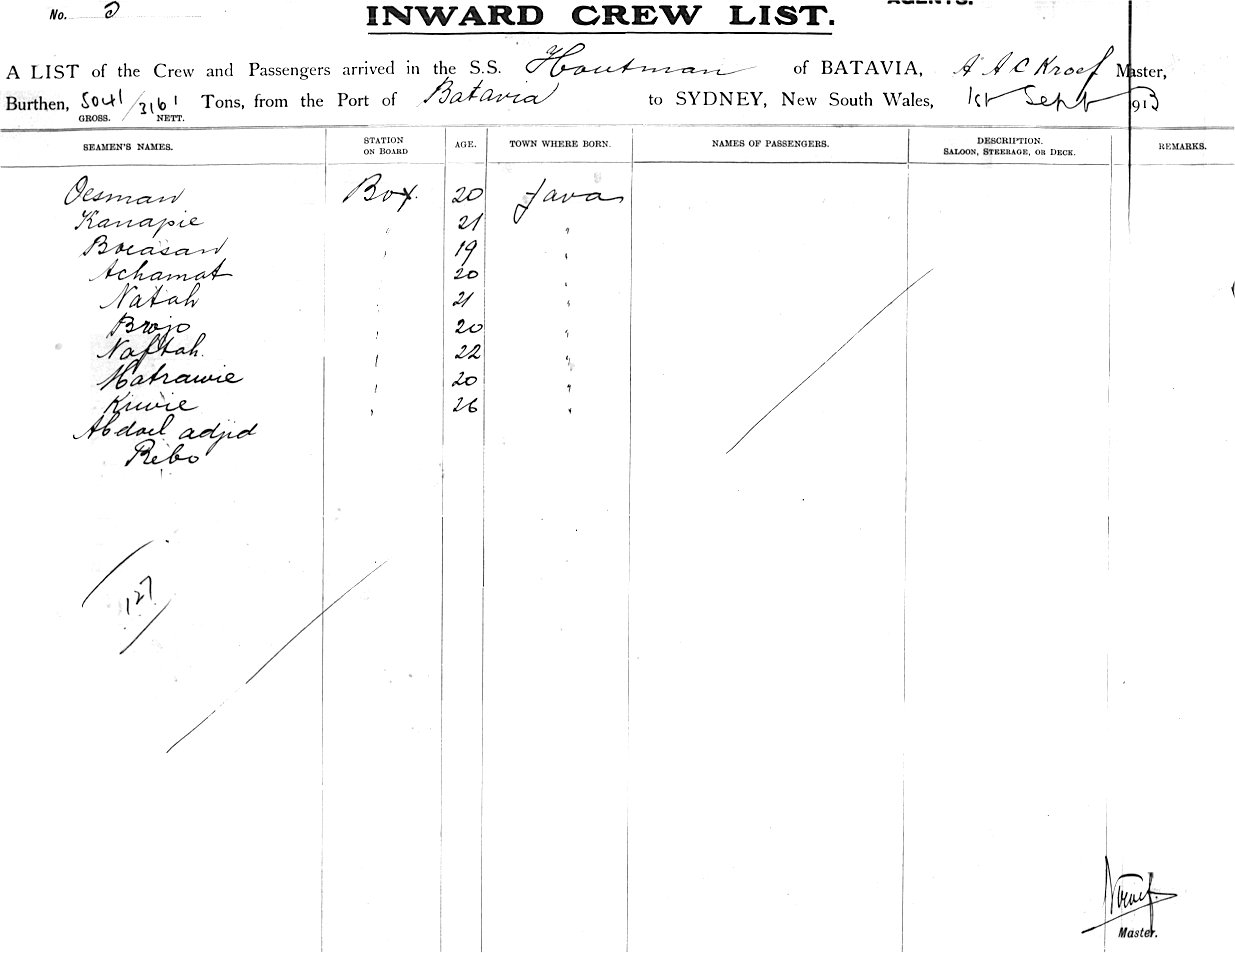 No. 3
AGENTS.
INWARD CREW LIST.
A LIST of the Crew and Passengers arrived in the S.S. Houtman of BATAVIA, A A C Kroef Master,
Burthen, 5041 GROSS. / 3161 NETT. Tons, from the Port of Batavia to SYDNEY, New South Wales, 1st Sept 1913
SEAMEN'S NAMES. STATION ON BOARD AGE. TOWN WHERE BORN. NAMES OF PASSENGERS. DESCRIPTION. SALOON, STEERAGE, OR DECK. REMARKS.
Oesman Boy. 20 Java
Kanapie " 21 "
Boeasan " 19 "
Achamat 20 "
Natah " 21 "
Brojo " 20 "
Naftah. " 22 "
Matrawie " 20 "
Kriwie " 26 "
Abdoel adjid
Rebo
127
Kroef.
Master.